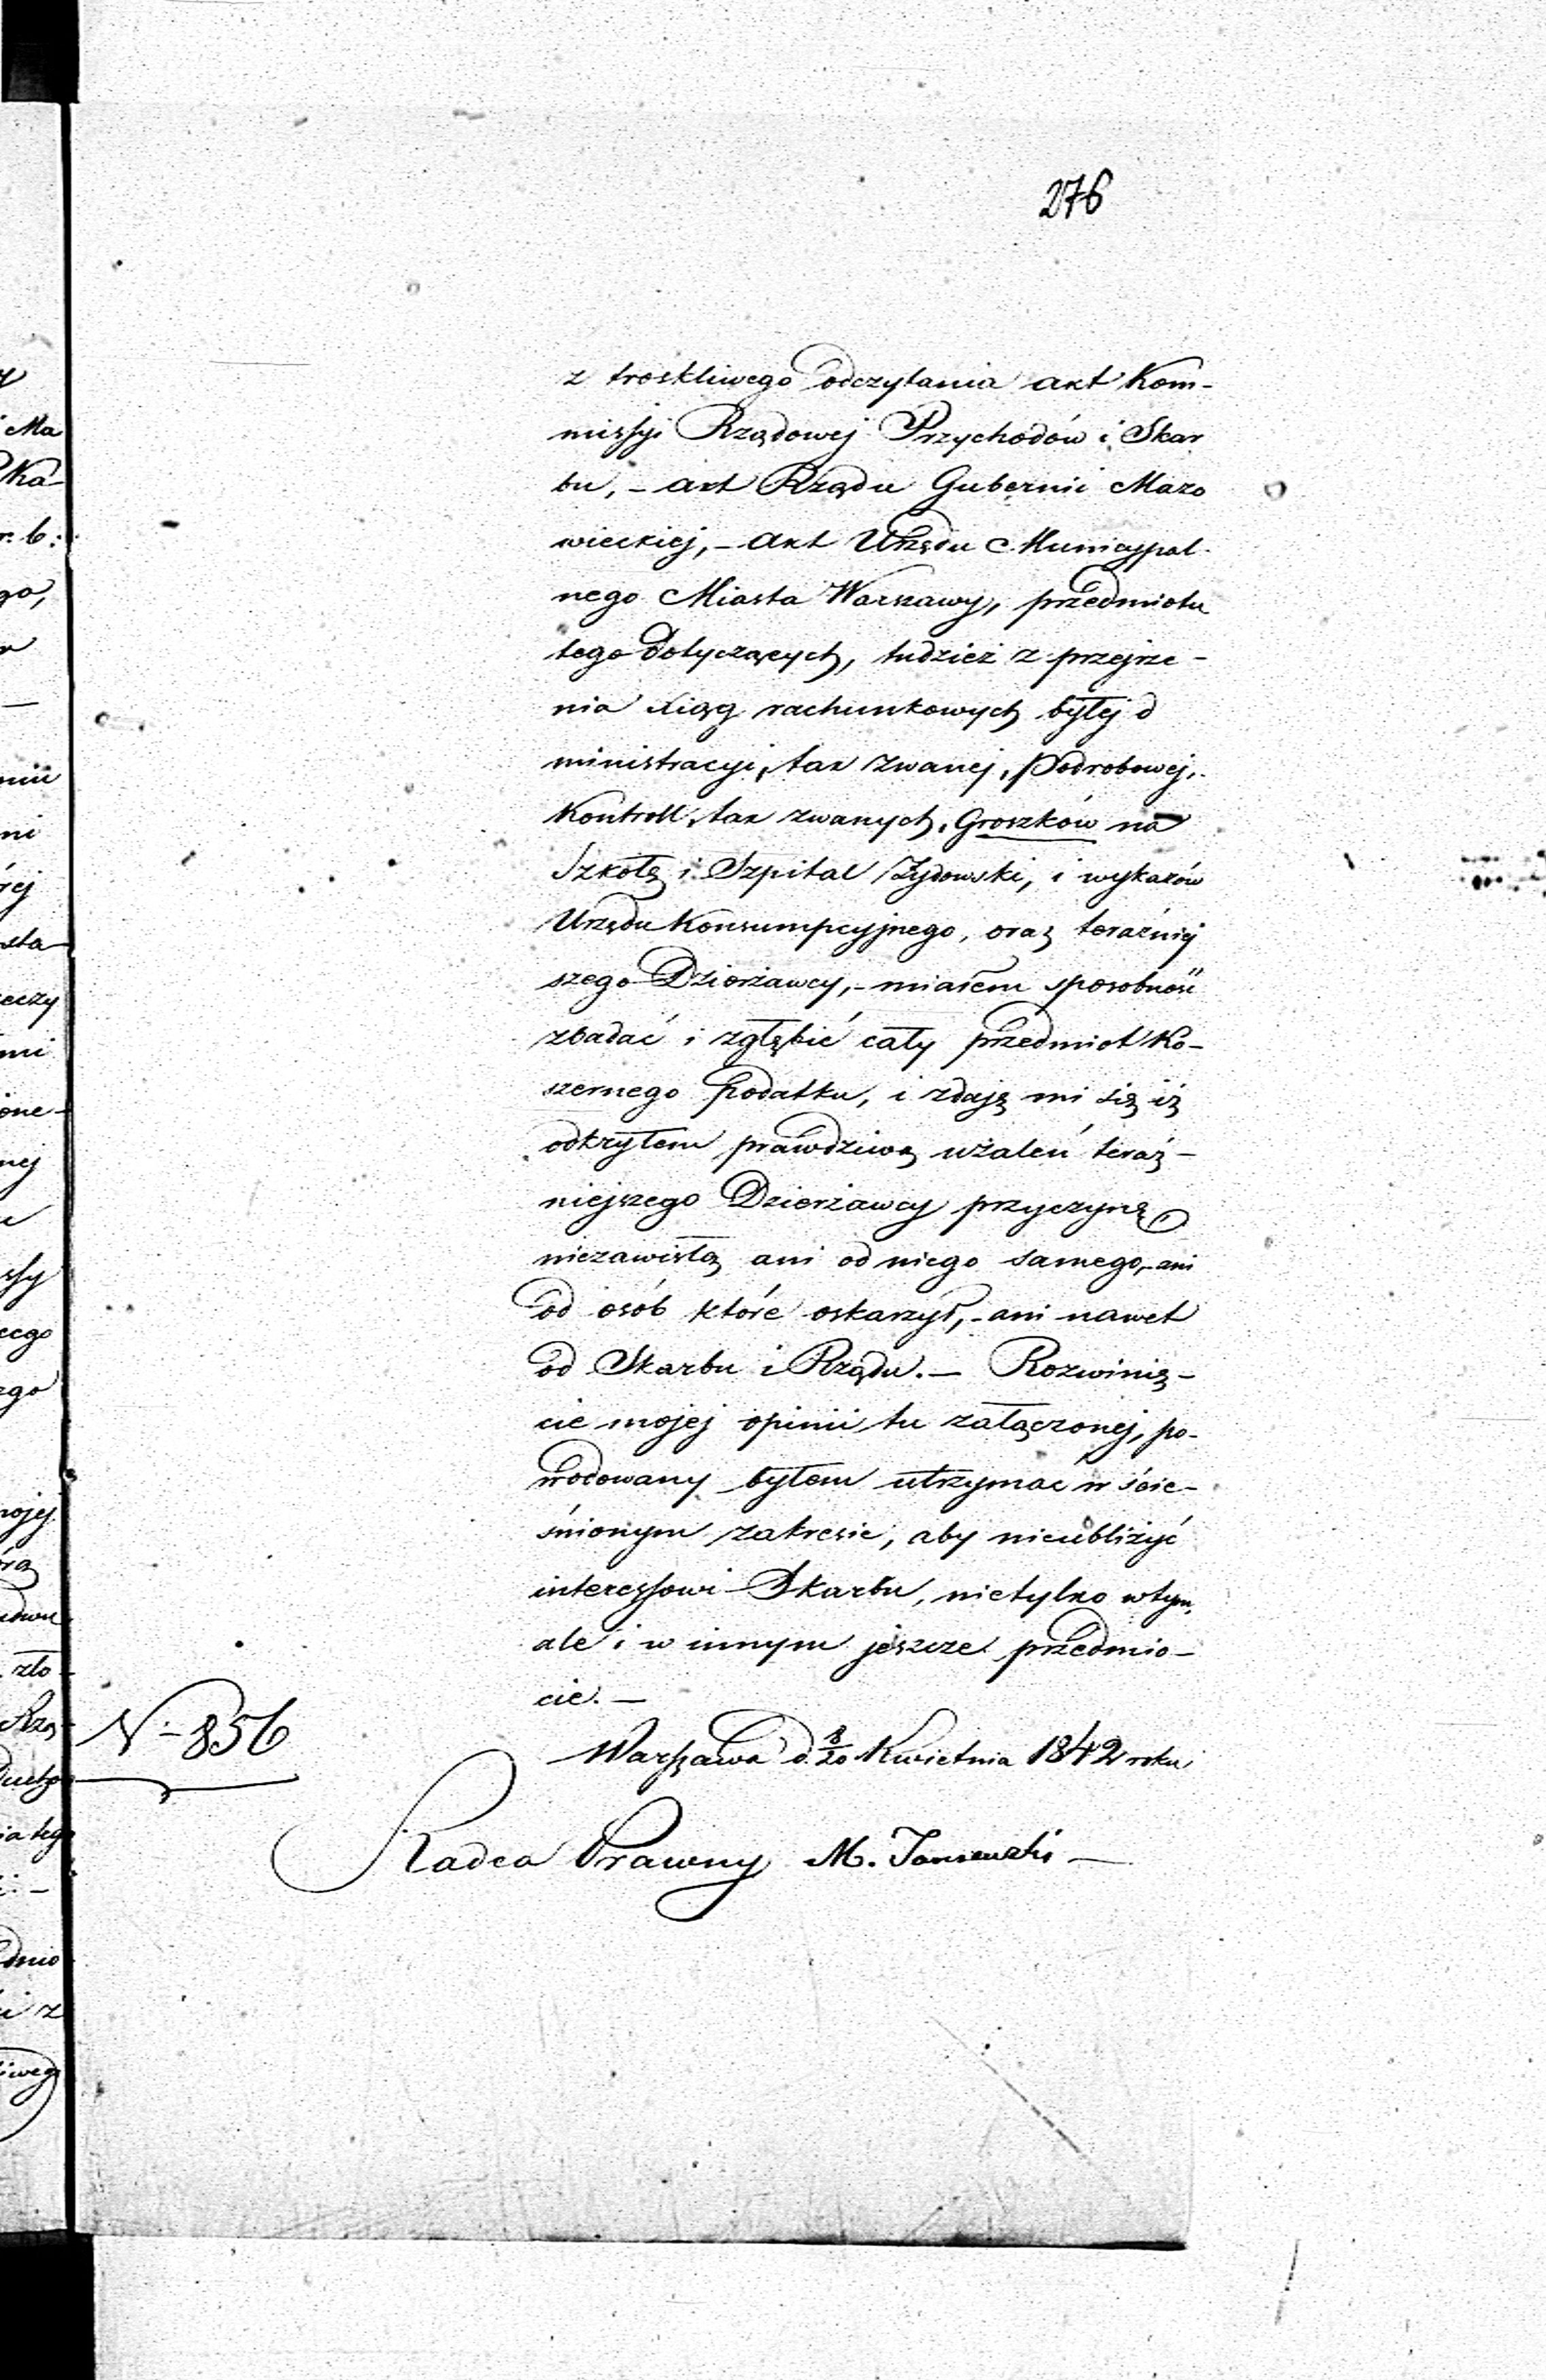 276
z troskliwego odczytania akt Kom-
missyi Rządowej Przychodów i Skar
bu, - akt Rządu Gubernii Mazo
wieckiej, - Akt Urzędu Municypal-
nego Miasta Warszawy, przedmiotu
tego dotyczących, tudzież z przejrze-
nia xiąg rachunkowych byłej d
ministracyi, tak zwanej, Podrobowej,
Kontroll, tak zwanych, Groszków na
Szkołę i Szpital Żydowski, i wykazów
Urzędu Konsumpcyjnego, oraz teraźniej
szego Dzierżawcy, - miałem sposobność
zbadać i zgłębić cały przedmiot Ko-
szernego podatku, i zdaję mi się iż
odkryłem prawdziwą użaleń teraź-
niejszego Dzierżawcy przyczynę
niezawisłą ani od niego samego, - ani
od osób które oskarzył, - ani nawet
od Skarbu i Rządu. - Rozwinię-
cie mojej opinii tu załączonej, po-
wodowany byłem utrzymać w ście-
śnionym zakresie, aby nieubliżyć
interessowi Skarbu, nietylko wtym,
ale i w innym jeszcze przedmio-
cie. -
N - 856
Warszawa d. 8/20 Kwietnia 1842 roku
Radca Prawny M. Janiewski -